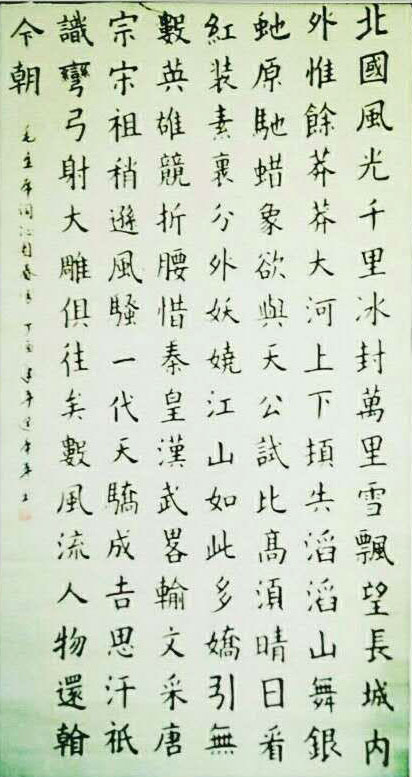 北國風光千里冰封萬里雪飄望長城内
外惟餘莽莽大河上下頓失滔滔山舞銀
虵原馳蜡象欲與天公試比髙須晴日看
紅装素裹分外妖嬈江山如此多嬌引無
數英雄競折腰惜秦皇漢武畧輸文采唐
宗宋祖稍遜風騷一代天驕成吉思汗祇
識彎弓射大雕俱往矣數風流人物還翰
今朝
毛主席词沁园春雪 丁酉